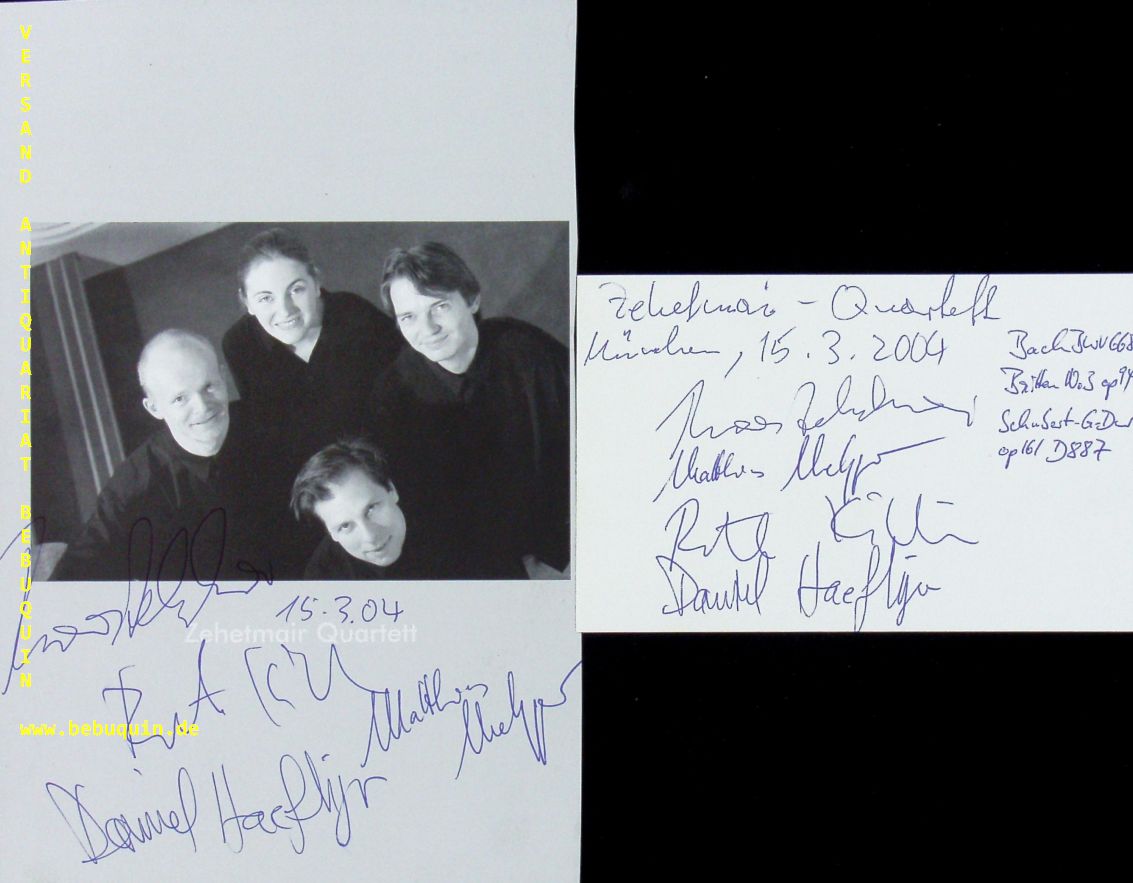 VERSAND ANTIQUARIAT BEBUQUIN
www.bebuquin.de
15.3.04
Zehetmair Quartett
Ruth
Matthias Metzger
Daniel Haefliger
Zehetmair - Quartett
München, 15.3.2004
Bach BWV 668
Britten No.3 op 94
Schubert G-Dur
op 161 D887
Thomas Zehetmair
Matthias Metzger
Ruth Killius
Daniel Haefliger